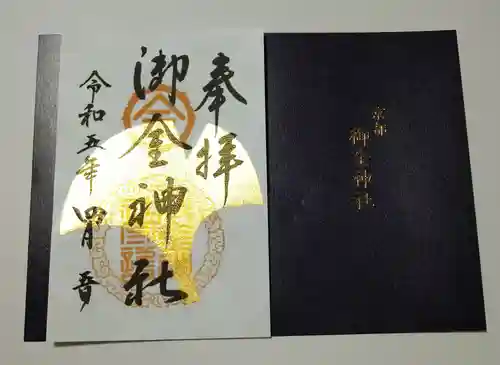 奉拝
御金神社
令和五年
京都
御金神社